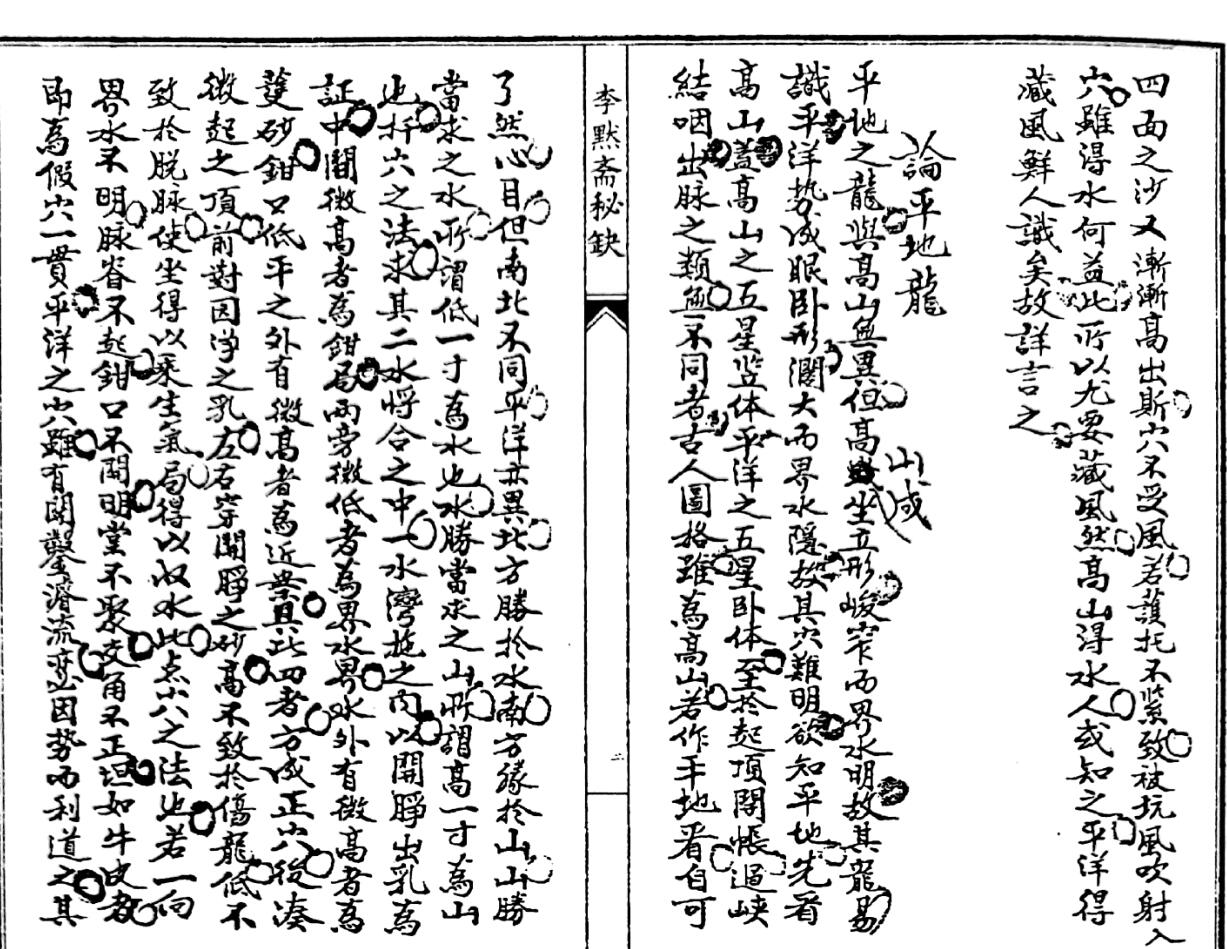 四面之沙又漸漸高出斯穴不受風若護托不緊致被坑風吹射入
穴雖淂水何益此所以尤要藏風然高山淂水人或知之平洋得
藏風鮮人識矣故詳言之
論平地龍
平地之龍與高山無異但高山成坐立形峻窄而界水明故其龍易
識平洋勢成眠卧形濶大而界水隱故其穴難明欲知平地先看
高山蓋高山之五星竖体平洋之五星卧体至於起頂開帳過峽
結咽出脉之類無不同者古人圖格雖為高山若作平地看自可
李默斎秘鈌
了然心目但南北不同平洋亦異北方勝於水南方勝於山山勝
當求之水所謂低一寸為水也水勝當求之山所謂高一寸為山
也扦穴之法求其二水將合之中一水灣抱之内以開睜出乳為
証中間微高者為鉗局兩旁微低者為界水界水外有微高者為
蔓砂鉗口低平之外有微高者為近案具此四者方成正穴後湊
微起之頂前對因淨之乳左右穿開睜之砂高不致於傷龍低不
致於脱脉使坐得以乘生氣局得以收水此点穴之法也若一向
界水不明脉脊不起鉗口不開明堂不聚交角不正坦如牛皮者
即為假穴一貫平洋之穴雖有開鑿濬流亦因勢而利道之其